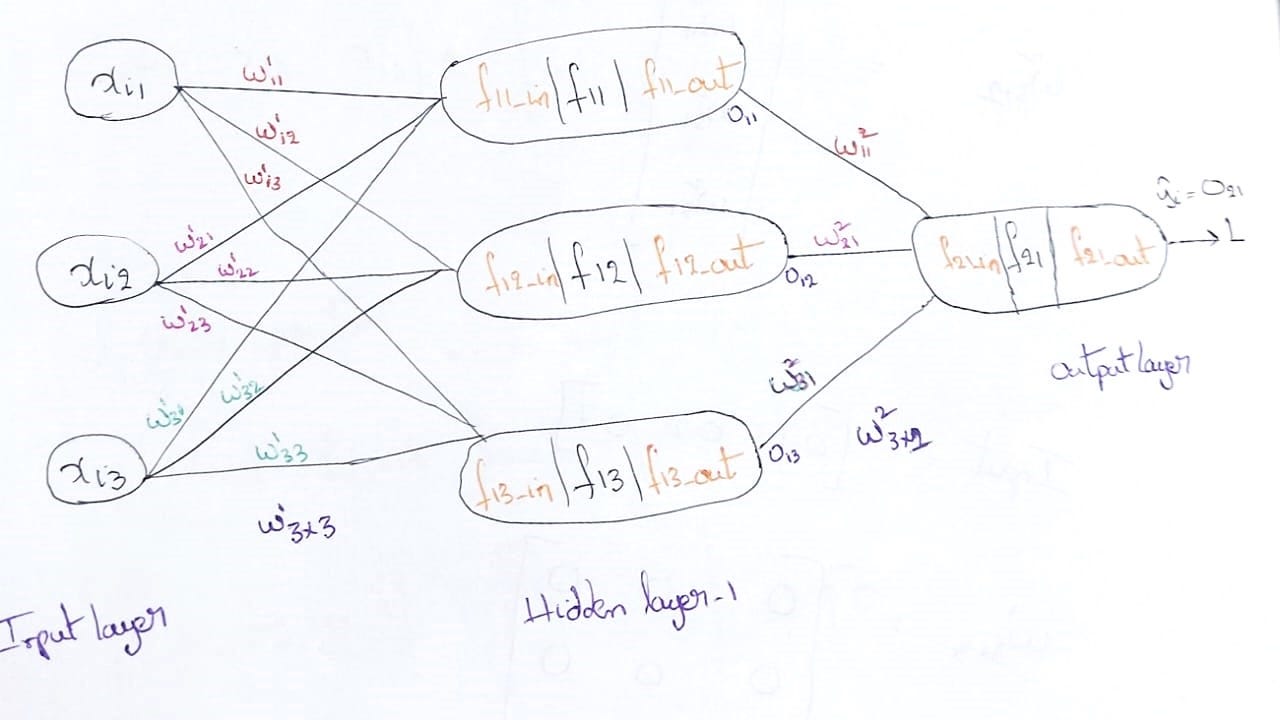 xi1
w¹11
w¹12
w¹13
f11_in | f11 | f11_out
O11
w²11
xi2
w¹21
w¹22
w¹23
f12_in | f12 | f12_out
O12
w²21
f21_in | f21 | f21_out
ŷi = O21
→ L
output layer
xi3
w¹31
w¹32
w¹33
w¹3×3
f13_in | f13 | f13_out
O13
w²31
Input layer
Hidden layer-1